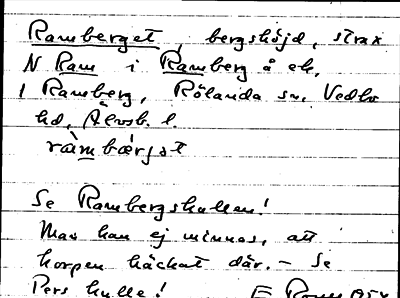 Ramberget, bergshöjd, strax
N Ram i Ramberg å ek.
1 Ramberg, Rölanda sn, Vedbo
hd, Älvsb. l.
ràmbær̀jət
Se Rambergskullen!
Man kan ej minnas, att
korpen häckat där. – Se
Pers kulle!